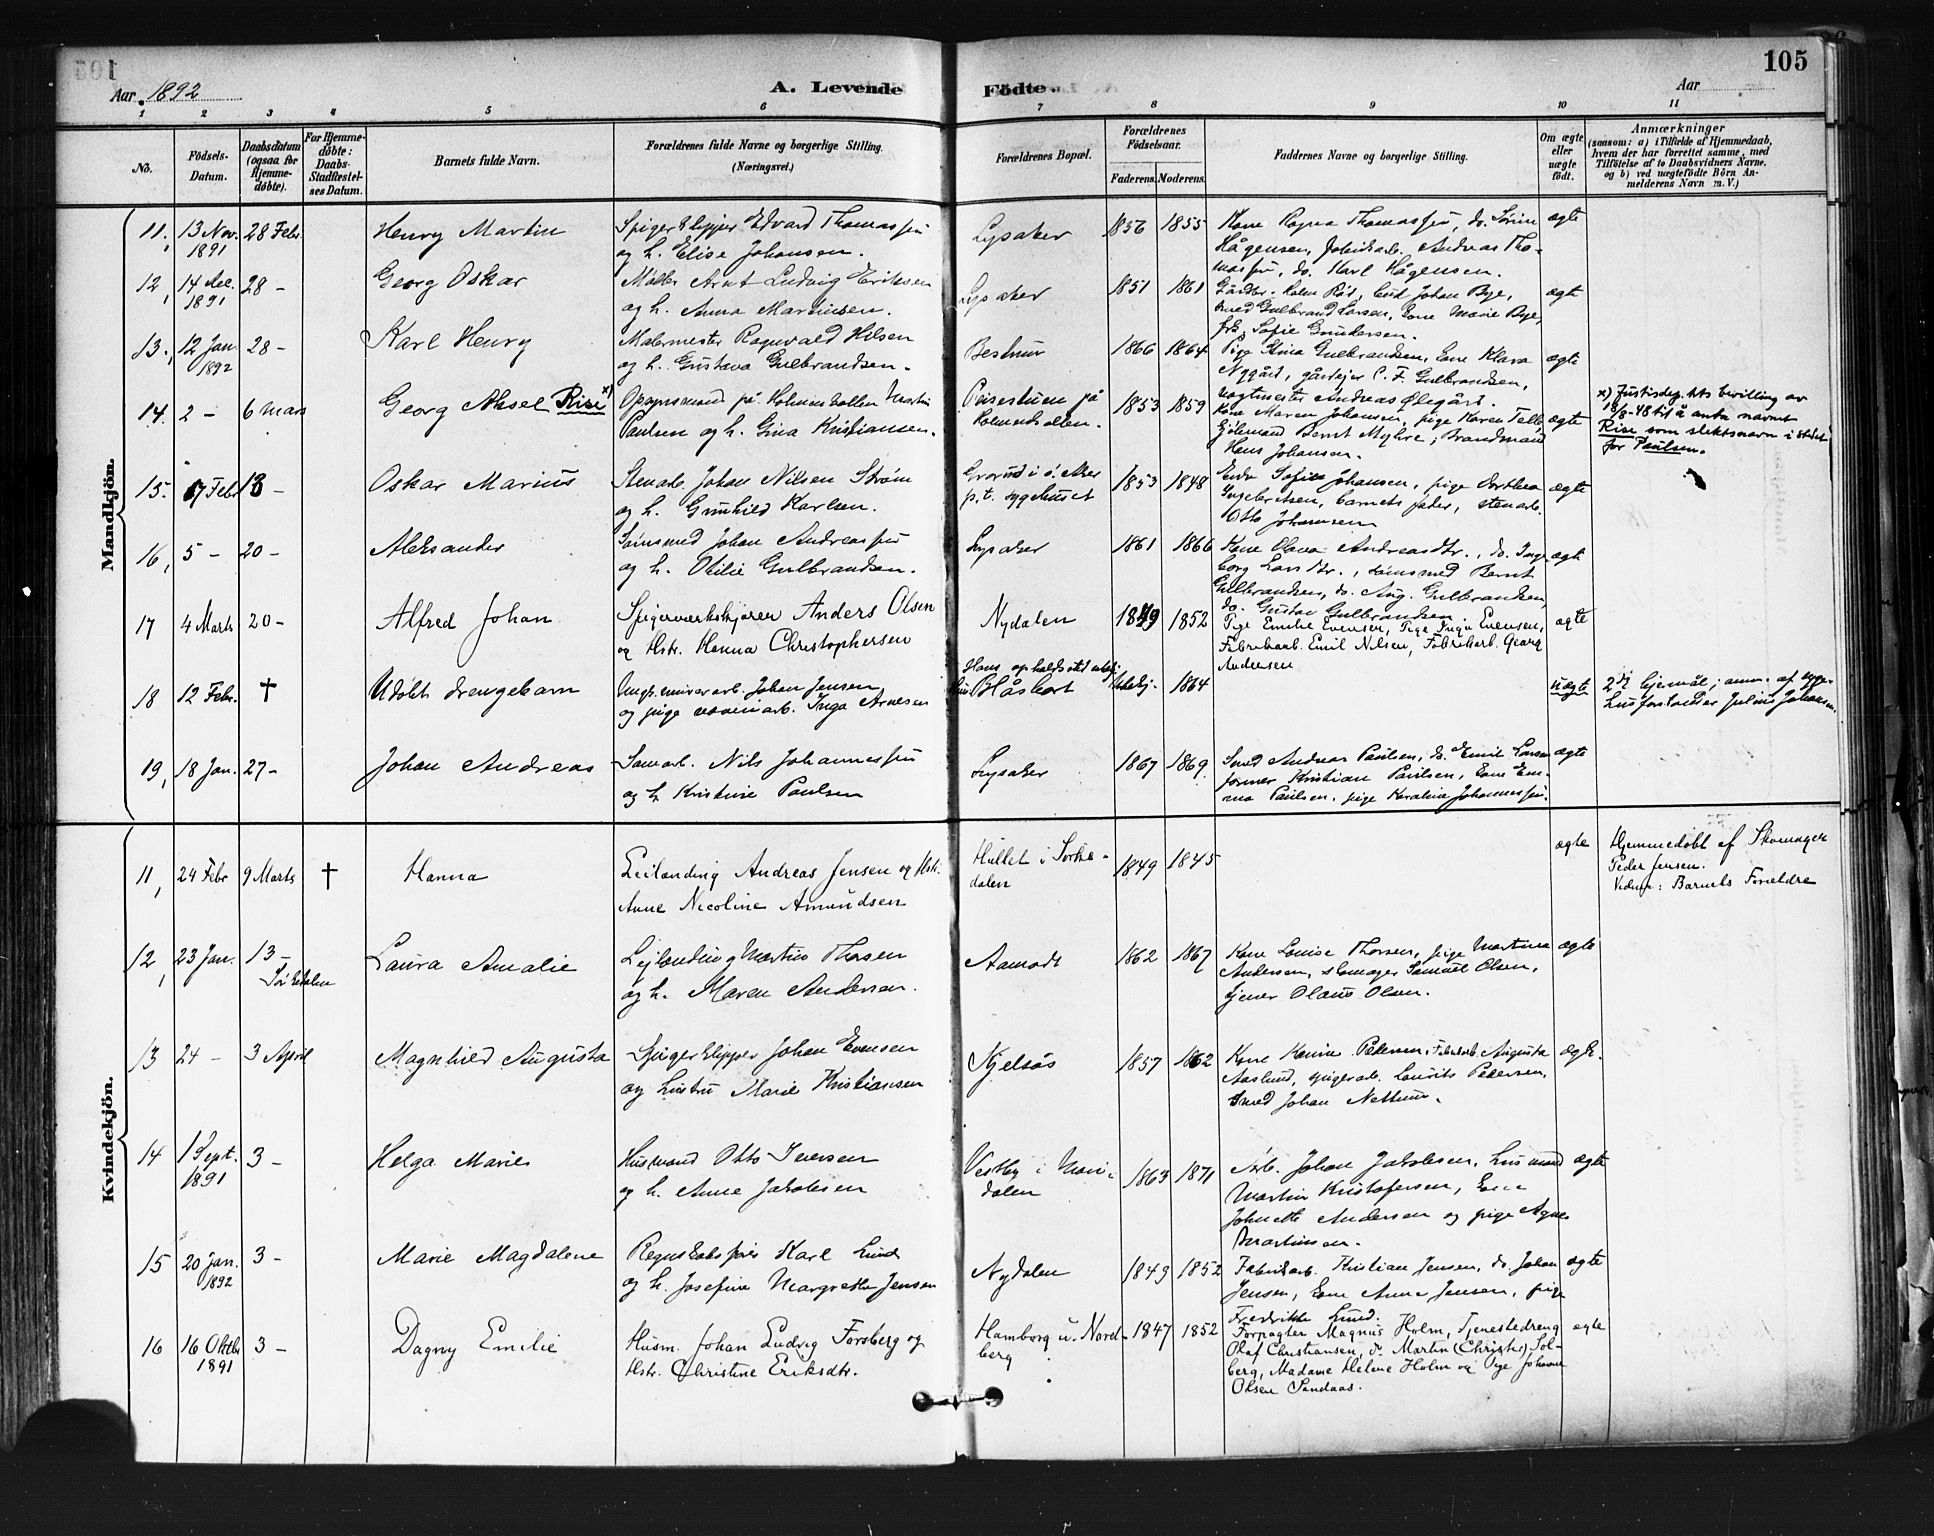 105
Aar 1892
A. Levende Födte.
Aar
1 2 3 4 5 6 7 8 9 10 11
No.
Födsels-Datum.
Daabsdatum (ogsaa for Hjemme-döbte).
For Hjemme-döbte: Daabs-Stadfæstelses Datum.
Barnets fulde Navn.
Forældrenes fulde Navne og borgerlige Stilling. (Næringsvei.)
Forældrenes Bopæl.
Forældrenes Födselsaar.
Faderens. Moderens.
Faddernes Navne og borgerlige Stilling.
Om ægte eller uægte födt.
Anmærkninger
(saasom: a) i Tilfælde af Hjemmedaab, hvem der har forrettet samme, med Tilföielse af to Daabsvidners Navne, og b) ved uægtefödte Börn Anmelderens Navn m. V.)
Mandkjön.
11. 13 Nov. 1891 28 Febr. Henry Martin
Spigerklipper Edvard Thomassen
og h. Elise Johansen.
Lysaker 1856 1855
Kone Ragna Thomassen, do. Sörine
Hågensen, Andreas Tho-
massen, do. Karl Hågensen.
ægte
12, 14 Dec. 1891 28 - Georg Oskar
Möller Arnt Ludvig Eriksen
og h. Anna Martinsen.
Lysaker 1851 1861
Johan Bye,
Smed Gulbrand Larsen, Kone Marie Bye,
frk. Sofie Gundersen.
ægte
13., 12 Jan. 1892 28 - Karl Henry
Malermester Ragnvald Nilsen
og h. Gustava Gulbrandsen.
Bestum 1866 1864
Pige Stina Gulbrandsen, Kone Klara
Nygård, gårdejer C. F. Gulbrandsen,
Andreas Ödegård.
ægte
14. 2 - 6 Mars Georg Aksel Rise x)
Opsynsmand på Holmenkollen Martin
Paulsen og h. Gina Kristiansen.
Peisestuen på
Holmenkollen.
1853 1859
Kone Maren Johansen, pige Karen
Bernt Myhre, Brandmand
Hans Johansen.
ægte
x) Justisdep.tets bevilling av
18/8-48 til å anta navnet
Rise som slektsnavn i stedet
for Paulsen.
15. 17 Feb. 13 - Oskar Marius
Stenarb. Johan Nilsen Ström
og h. Gunhild Karlsen.
Grorud i ö. Aker
p.t. sygehuset
1853 1848
Enke Sofie Johansen, pige Dorthea
Ingebretsen, barnets fader, stenarb.
Otto Johansen
ægte
16, 5 - 20 - Aleksander
Sömsmed Johan Andreassen
og h. Otilie Gulbrandsen.
Lysaker 1861 1866
Kone Olava Andreasdtr., do. Inge-
borg Larsdtr., sömsmed Bernt
Gulbrandsen, do. Aug. Gulbrandsen,
do. Gustav Gulbrandsen
ægte
17 4 Marts 20 - Alfred Johan
Spigerverkskjörer Anders Olsen
og Hstr. Hanna Christophersen
Nydalen 1849 1852
Pige Emilie Evensen, Pige Inga Evensen,
Fabrikarb. Emil Nilsen, Fabrikarb. Georg
Andersen
ægte
18 12 Febr. † Udöbt drengebarn
Ungk. murerarb. Johan Jensen
og pige væveriarb. Inga Arnesen
Hans opholdssted ubekj.
Blåskort
Ubekj. 1864
uægte
2det lejermål; anm. af syge-
husforstander Julius Johansen.
19, 18 Jan. 27 - Johan Andreas
Sömarb. Nils Johannessen
og h. Kristine Paulsen
Lysaker 1867 1869
Smed Andreas Paulsen, do. Emil Larsen
former Kristian Paulsen, Kone Em-
ma Paulsen, pige Karoline Johannessen.
ægte
Kvindekjön.
11, 24 Febr 9 Marts † Hanna
Leilænding Andreas Jensen og Hstr.
Anne Nicoline Amundsen
Hullet i Sörke-
dalen
1849 1845
ægte
Hjemmedöbt af Skomager
Peder Jensen.
Vidner: Barnets Forældre
12, 23 Jan. 13 - Sörkedalen
Laura Amalie
Lejlænding Martin Thorsen
og h. Maren Andersen.
Aamodt 1862 1867
Kone Louise Thorsen, pige Martina
Andersen, skomager Samuel Olsen,
tjener Olaus Olsen.
ægte
13 24 - 3 April Magnhild Augusta
Spigerklipper Johan Evensen
og hustru Marie Kristiansen
Kjelsås 1857 1862
Kone Hanna Petersen, Fabrikarb. Augusta
Aaslund, spigerarb. Laurits Petersen,
Smed Johan Nettum.
ægte
14 1 Sept. 1891 3 - Helga Marie
Husmand Otto Iversen
og h. Anne Jakobsen
Vestby i Mari-
dalen
1863 1871
Arb. Johan Jakobsen, husmand
Martin Kristofersen, Kone
Johnette Andersen og pige Agnes
Martinsen.
ægte
15 20 Jan. 1892 3 - Marie Magdalene
Regnskabsförer Karl Lund
og h. Josefine Margrethe Jensen
Nydalen 1849 1852
Fabrikarb. Kristian Jensen, do. Johan
Jensen, Kone Anna Jensen, pige
Fredrikke Lund.
ægte
16 16 Oktbr 1891 3 - Dagny Emilie
Husm. Johan Ludvig Forsberg og
Hstr. Christine Eriksdtr.
Hamborg u. Nord-
berg
1847 1852
Forpagter Magnus Holm, Tjenestedreng
Olaf Christiansen, do. Martin (Christe) Sol-
berg, Madame Helene Holm og Pige Johanne
Olsen Sandaas.
ægte